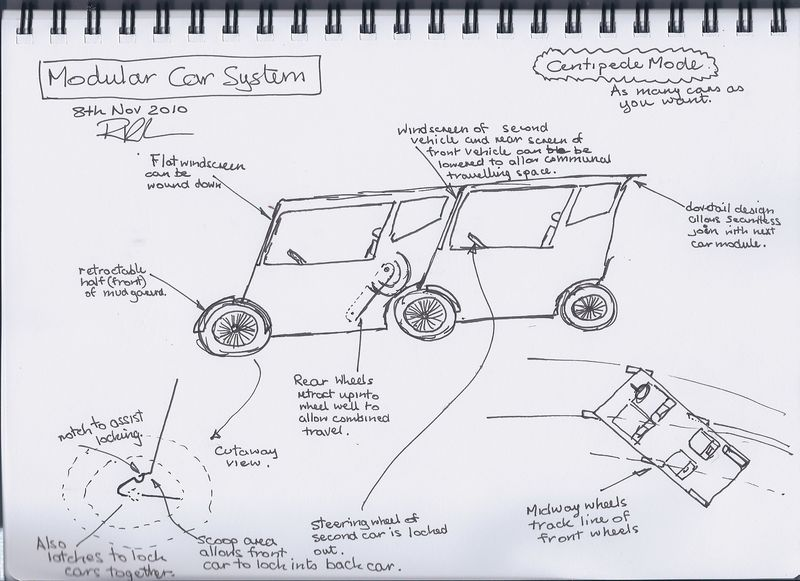 Modular Car System
8th Nov 2010
Centipede Mode
As many cars as
you want.
Flat windscreen
can be
wound down
Windscreen of second
vehicle and rear screen of
front vehicle can be
lowered to allow communal
travelling space.
dovetail design
allows seamless
join with next
car module.
retractable
half (front)
of mudguard.
Rear wheels
retract up into
wheel well to
allow combined
travel.
notch to assist
locking.
Cutaway
view.
Steering wheel of
second car is locked
out.
Midway wheels
track line of
front wheels
Also
latches to lock
cars together.
Scoop area
allows front
car to lock into back car.